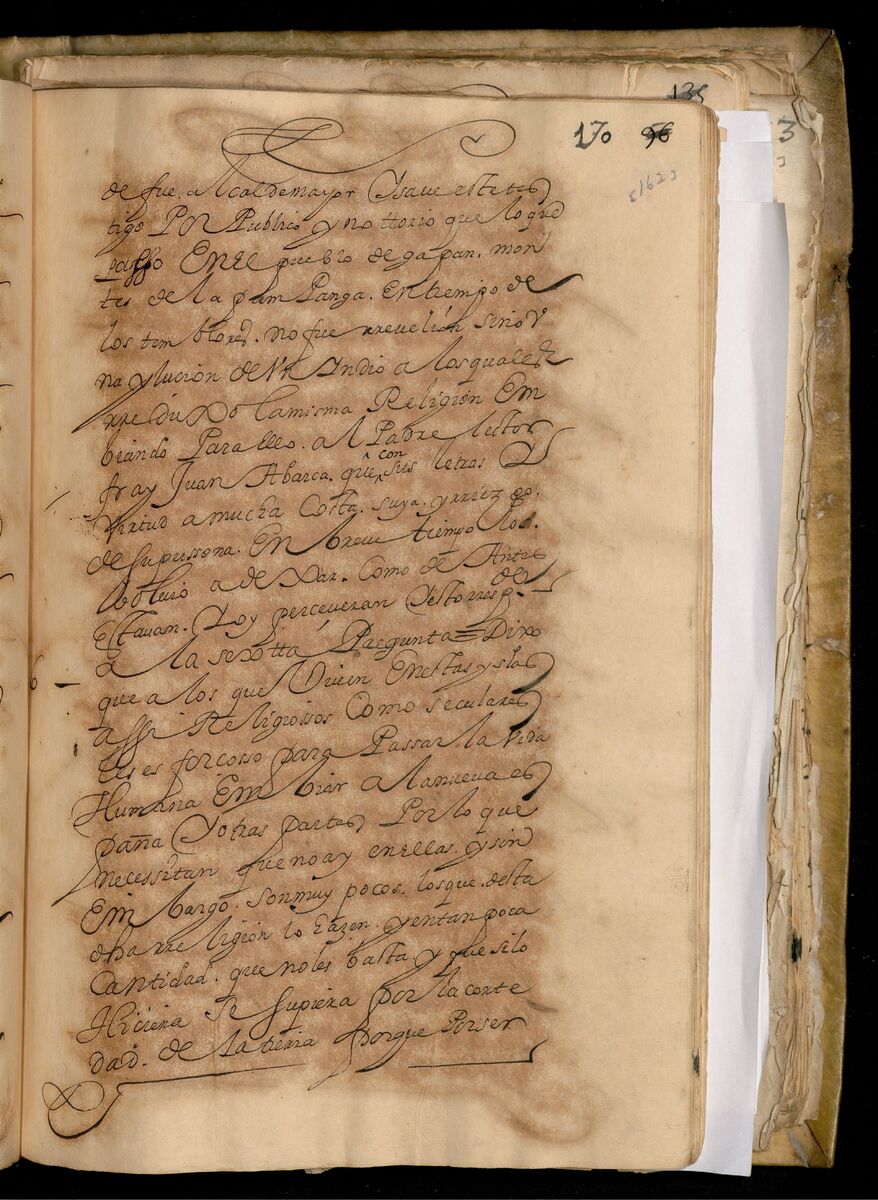 135
170 96
3
[162]
de fue. alcaldemayor Y save estetes
tigo Por Publico y nottorio que lo que
passo En El pueblo de gapan. mon
tes de la pam Panga. En tiempo de
los tem blores. no fue rrevelion sino V
na yluçion de Vn Yndio a los quales
rre duxo la misma Religion Em
biando Para ello. al Padre lector
fray Juan Abarca. que con sus letras Y
virtud a mucha Costa. suya. y rriezgo.
de su perssona. En breve tiempo los.
bolvio a de Xar. Como de Antes
Estavan. Y oy perceveran Y esto rresp.de
6 A la sexstta Pregunta = Dixo
que a los que Viven En estas yslas
assi Religiossos Como seculares
les es forcosso para Passar la vida
Humana Em biar a la nueva es
paña Y otras partes Por lo que
necessitan que no ay en ellas. y sin
Em bargo. son muy pocos. los que. desta
dha rreligion lo hazen. y en tan poca
Cantidad. que no les basta y que si lo
Hiciera se supiera por la corte
dad. de la tierra Porque Por ser